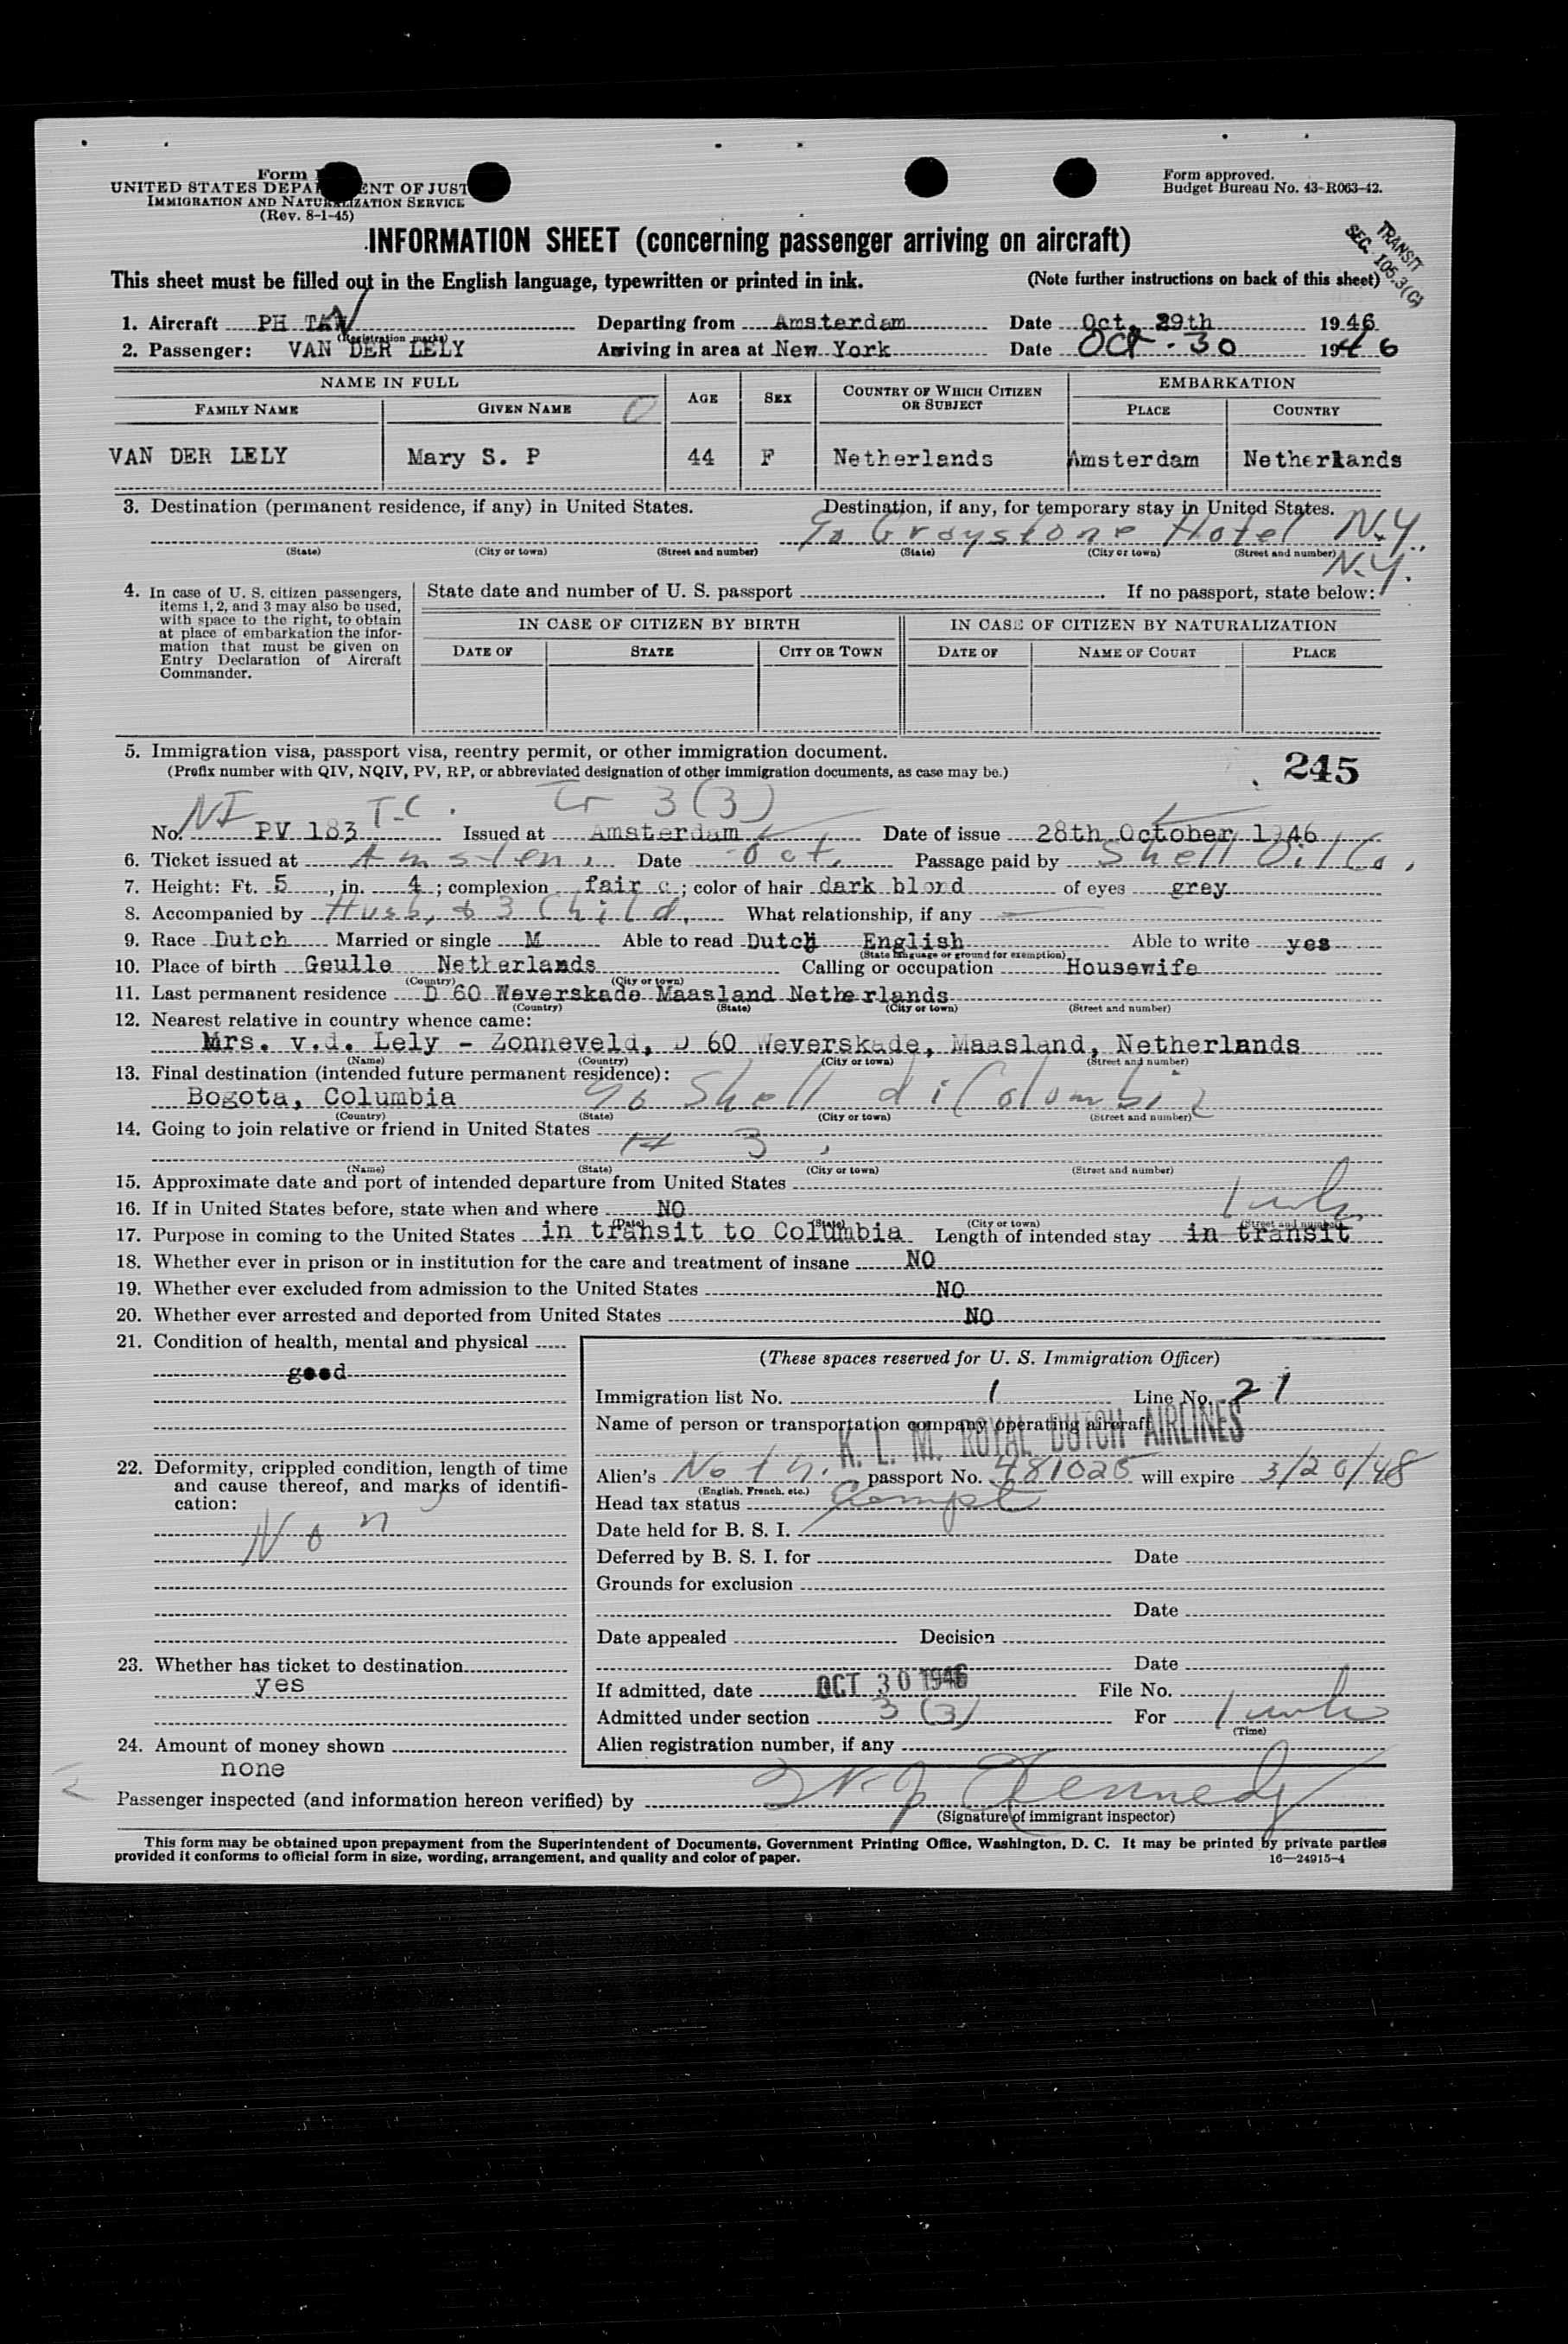 Form
UNITED STATES DEPA ENT OF JUST
IMMIGRATION AND NATURALIZATION SERVICE
(Rev. 8-1-45)
Form approved.
Budget Bureau No. 43-R063-42.
INFORMATION SHEET (concerning passenger arriving on aircraft)
TRANSIT
SEC. 105.3(C)
This sheet must be filled out in the English language, typewritten or printed in ink. (Note further instructions on back of this sheet)
1. Aircraft PH TAV Departing from Amsterdam Date Oct. 29th 1946
(Registration marks)
2. Passenger: VAN DER LELY Arriving in area at New York Date OCT. 30 1946
NAME IN FULL AGE SEX COUNTRY OF WHICH CITIZEN OR SUBJECT EMBARKATION
FAMILY NAME GIVEN NAME PLACE COUNTRY
VAN DER LELY Mary S. P 44 F Netherlands Amsterdam Netherlands
3. Destination (permanent residence, if any) in United States. Destination, if any, for temporary stay in United States.
Graystone Hotel N.Y.,
(State) (City or town) (Street and number) (State) (City or town) (Street and number)
N.Y.
4. In case of U. S. citizen passengers, items 1, 2, and 3 may also be used, with space to the right, to obtain at place of embarkation the information that must be given on Entry Declaration of Aircraft Commander.
State date and number of U. S. passport . If no passport, state below:
IN CASE OF CITIZEN BY BIRTH IN CASE OF CITIZEN BY NATURALIZATION
DATE OF STATE CITY OR TOWN DATE OF NAME OF COURT PLACE
5. Immigration visa, passport visa, reentry permit, or other immigration document.
(Prefix number with QIV, NQIV, PV, RP, or abbreviated designation of other immigration documents, as case may be.)
245
NI T-C. Tr 3(3)
No. PV 183 Issued at Amsterdam Date of issue 28th October 1946
6. Ticket issued at Date Oct. Passage paid by Shell Oil Co.
7. Height: Ft. 5, in. 4; complexion fair; color of hair dark blond of eyes grey
8. Accompanied by Husb, & 3 Child. What relationship, if any
9. Race Dutch Married or single M Able to read Dutch English Able to write yes
(State language or ground for exemption)
10. Place of birth Geulle Netherlands Calling or occupation Housewife
(Country) (City or town)
11. Last permanent residence D 60 Weverskade Maasland Netherlands
(Country) (State) (City or town) (Street and number)
12. Nearest relative in country whence came:
Mrs. v.d. Lely - Zonneveld, D 60 Weverskade, Maasland, Netherlands
(Name) (Country) (City or town) (Street and number)
13. Final destination (intended future permanent residence):
Bogota, Columbia Shell di Columbia
(Country) (State) (City or town) (Street and number)
14. Going to join relative or friend in United States
H 3
(Name) (State) (City or town) (Street and number)
15. Approximate date and port of intended departure from United States
16. If in United States before, state when and where NO
(Date) (State) (City or town) (Street and number)
17. Purpose in coming to the United States in transit to Columbia Length of intended stay in transit
18. Whether ever in prison or in institution for the care and treatment of insane NO
19. Whether ever excluded from admission to the United States NO
20. Whether ever arrested and deported from United States NO
21. Condition of health, mental and physical
good
22. Deformity, crippled condition, length of time and cause thereof, and marks of identification:
Non
23. Whether has ticket to destination
yes
24. Amount of money shown
none
(These spaces reserved for U. S. Immigration Officer)
Immigration list No. 1 Line No. 21
Name of person or transportation company operating aircraft
K. L. M. ROYAL DUTCH AIRLINES
Alien's Neth. passport No. 481025 will expire 3/20/48
(English, French, etc.)
Head tax status Exempt
Date held for B. S. I.
Deferred by B. S. I. for Date
Grounds for exclusion
Date
Date appealed Decision
Date
If admitted, date OCT 30 1946 File No.
Admitted under section 3 (3) For
(Time)
Alien registration number, if any
Passenger inspected (and information hereon verified) by Kennedy
(Signature of immigrant inspector)
This form may be obtained upon prepayment from the Superintendent of Documents, Government Printing Office, Washington, D. C. It may be printed by private parties
provided it conforms to official form in size, wording, arrangement, and quality and color of paper. 16—24915-4